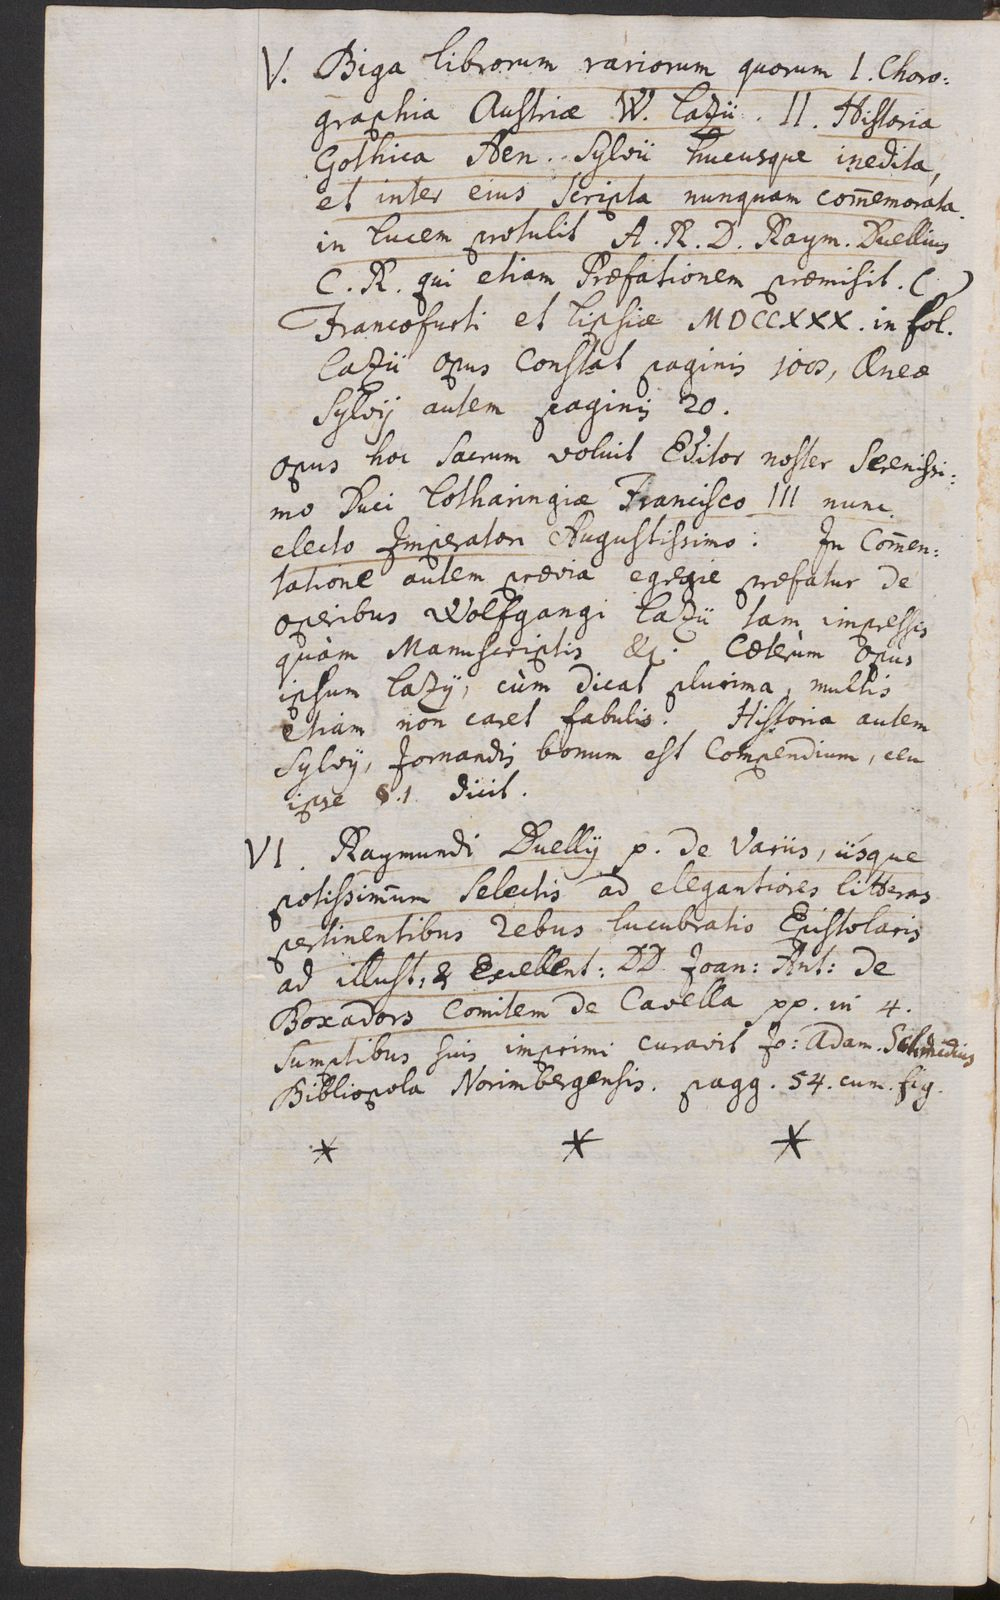 V. Biga librorum rariorum quorum I. Choro:
graphia Austriæ W. Lazii. II. Historia
Gothica Aen. Sylvii hucusque inedita,
et inter eius scripta nunquam com̄emorata.
in lucem protulit A. R. D. Raym. Duellius
C. R. qui etiam Præfationem præmisit. ( )
Francofurti et Lipsiæ MDCCXXX. in fol.
Lazii opus constat paginis 100, Æneæ
Sylvij autem paginis 20.
opus hoc sacrum voluit Editor noster Serenissi:
mo Duci Lotharingiæ Francisco III nunc.
electo Imperatori Augustissimo: In Com̄en:
tatione autem prævia egregie præfatur de
operibus Wolfgangi Lazii tam impressis
quàm Manuscriptis &c. Cæterùm opus
ipsum Lazij, cùm dicat plurima, multis
etiam non caret fabulis. Historia autem
Sylvij, Jornandis bonum est Compendium, ceu
ipse §.1 dicit.
VI. Raymundi Duellij p. de Variis, iisque
potissimum selectis ad elegantiores litteras
pertinentibus rebus lucubratio Epistolaris
ad illust: & Excellent: DD. Joan: Ant: de
Boxadors Comitem de Cavella pp. in 4.
sumptibus suis imprimi curavit Jo: Adam. Schmidius
Bibliopola Norimbergensis. pagg. 54. cum. fig.
* * *